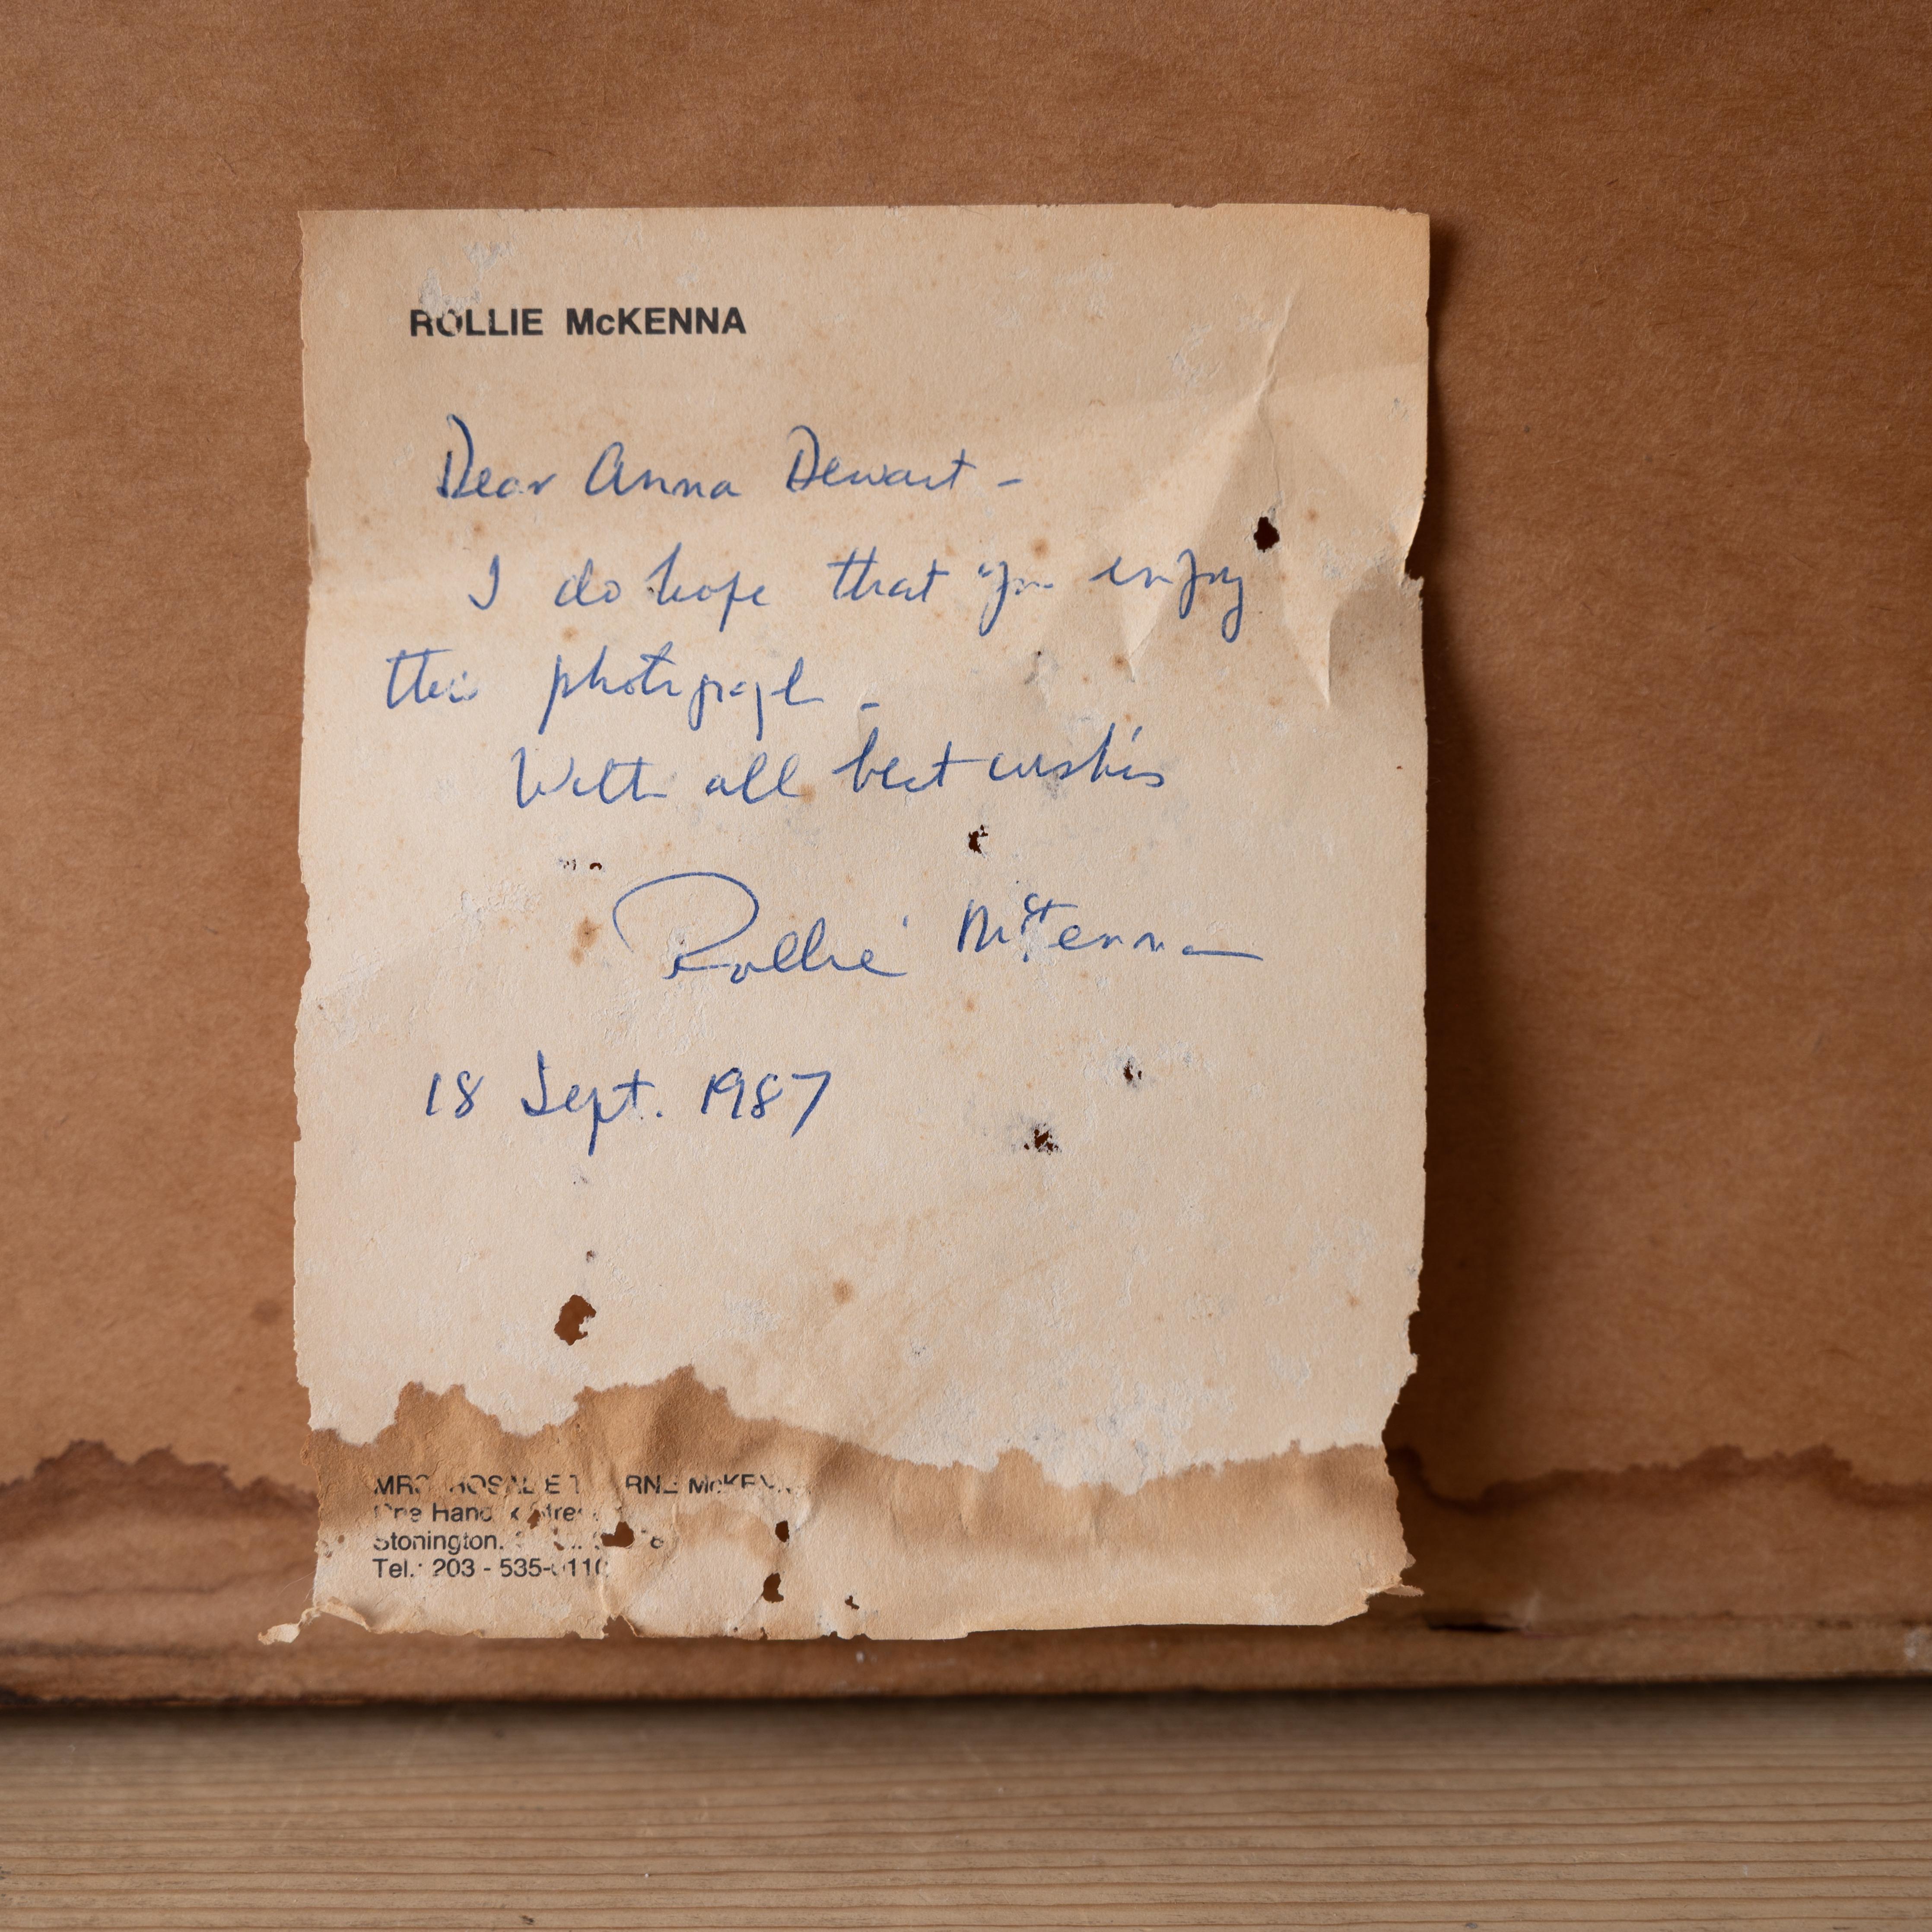 ROLLIE McKENNA
Dear Anna Dewart -
I do hope that you enjoy
this photograph -
With all best wishes
Rollie McKenna
18 Sept. 1987
MRS McKENN
One Street
Stonington.
Tel.: 203 - 535-0110